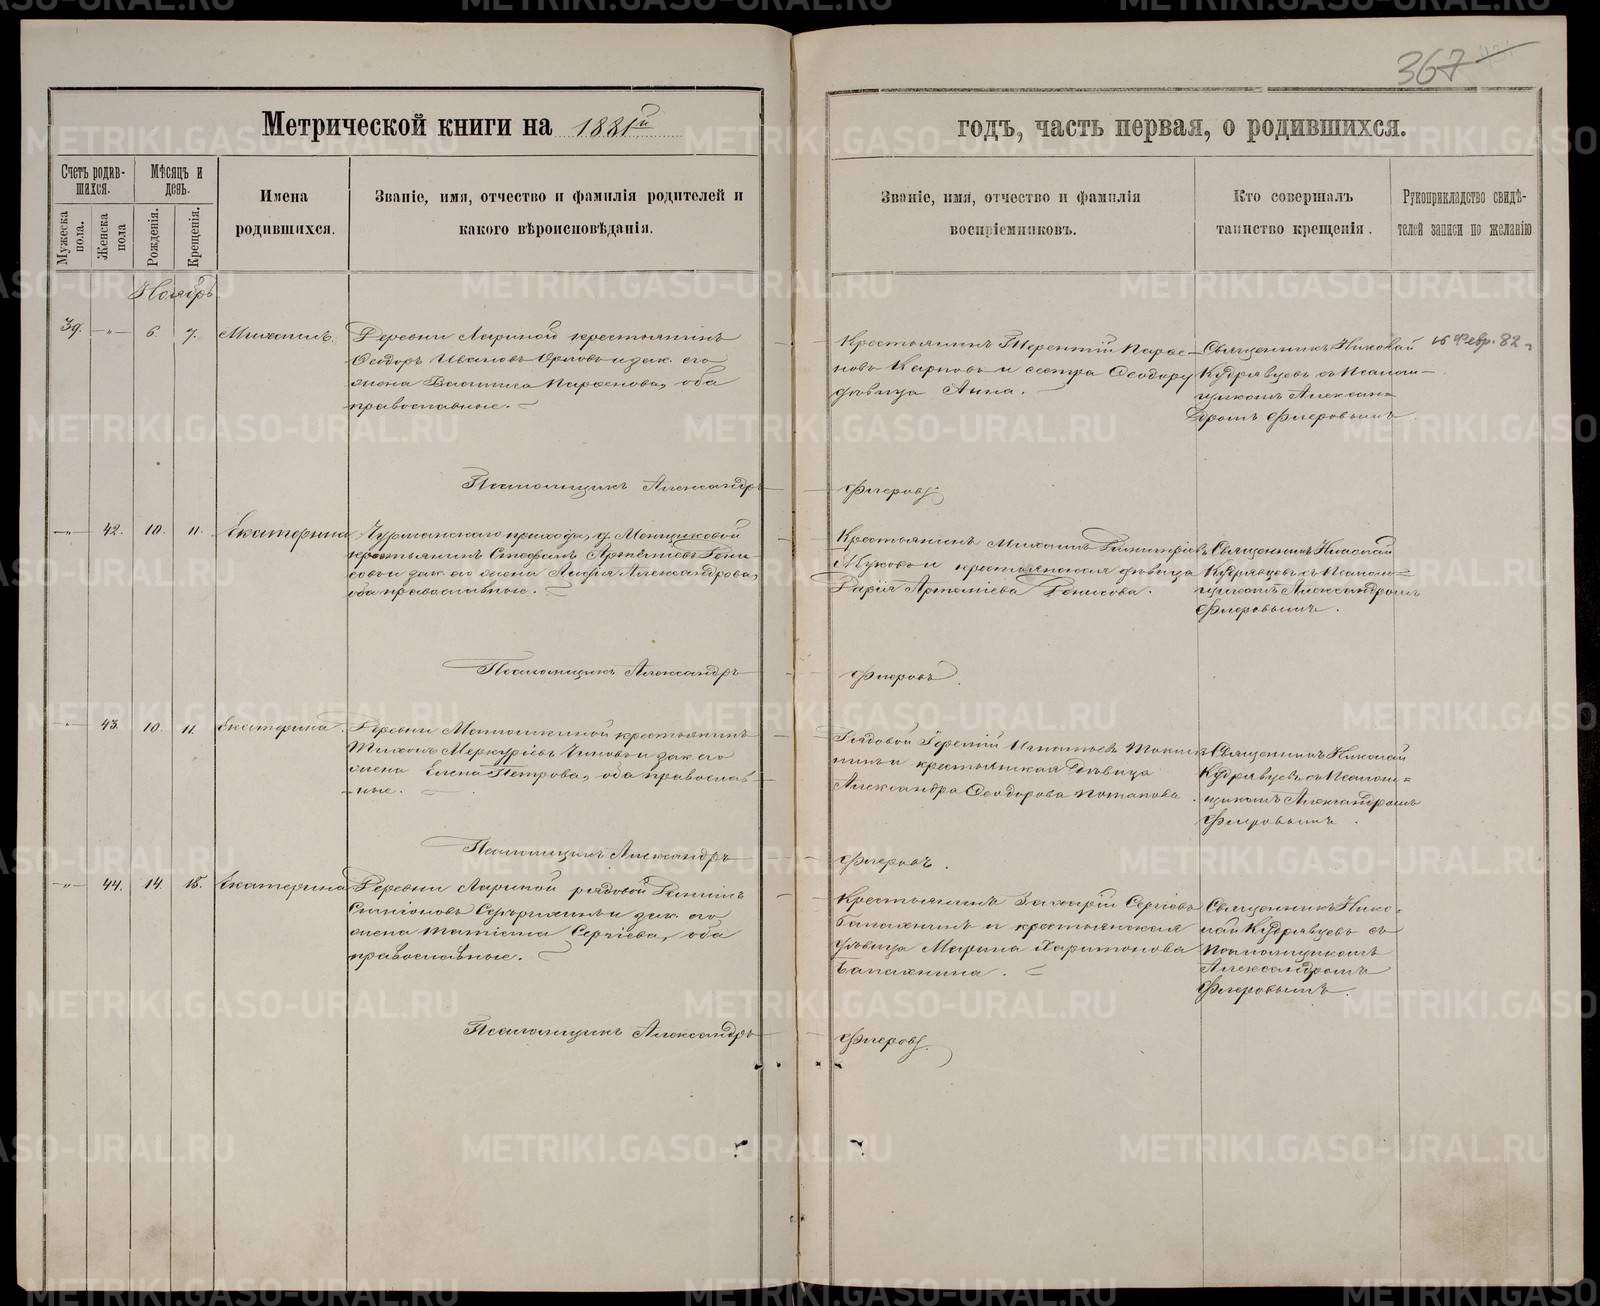 367
Метрической книги на 1881й
годъ, часть первая, о родившихся.
Счетъ родив-
шихся.
Мужеска
пола.
Женска
пола
Мѣсяцъ и
день.
Рожденія.
Крещенія.
Имена
родившихся.
Званіе, имя, отчество и фамилія родителей и
какого вѣроисповѣданія.
Званіе, имя, отчество и фамилія
воспріемниковъ.
Кто совершалъ
таинство крещенія.
Рукоприкладство свидѣ-
телей записи по желанію
Ноябрь
39. —„— 6. 7. Михаилъ.
Деревни Лариной крестьянинъ
Ѳеодоръ Ивановъ Орловъ и зак. его
жена Василиса Парѳенова, оба
православные.
Крестьянинъ Терентій Парѳе-
новъ Карповъ и сестра Ѳеодору
дѣвица Анна.
Священникъ Николай
Кудрявцевъ съ Псалом-
щикомъ Алексан-
дромъ Флеровымъ.
16 Февр. 82
Псаломщикъ Александръ
Флеровъ
—„— 42. 10. 11. Екатерина
прихода, д. Менщиковой
крестьянинъ Стефанъ Артеміевъ Дени-
совъ и зак. его жена Александрова,
оба православные.
Крестьянинъ Михаилъ Димитріевъ
и крестьянская дѣвица
Дарія Артеміева Денисова.
Священникъ Николай
Кудрявцевъ съ Псалом-
щикомъ Александромъ
Флеровымъ.
Псаломщикъ Александръ
Флеровъ.
—„— 43. 10. 11. Екатерина.
Деревни крестьянинъ
Тихонъ Меркурьевъ и зак. его
жена Елена Петрова, оба православ-
ные.
Рядовой Игнатьевъ
и крестьянская дѣвица
Александра Ѳеодорова Потапова.
Священникъ Николай
Кудрявцевъ съ Псалом-
щикомъ Александромъ
Флеровымъ.
Псаломщикъ Александръ
Флеровъ.
—„— 44. 14. 15. Екатерина
Деревни Лариной рядовой
Симеоновъ и зак. его
жена Татіана Сергіева, оба
православные.
Крестьянинъ Захарій Сергіевъ
Балахнинъ и крестьянская
дѣвица Марина Харитонова
Балахнина.
Священникъ Нико-
лай Кудрявцевъ съ
Псаломщикомъ
Александромъ
Флеровымъ.
Псаломщикъ Александръ
Флеровъ.
METRIKI.GASO-URAL.RU